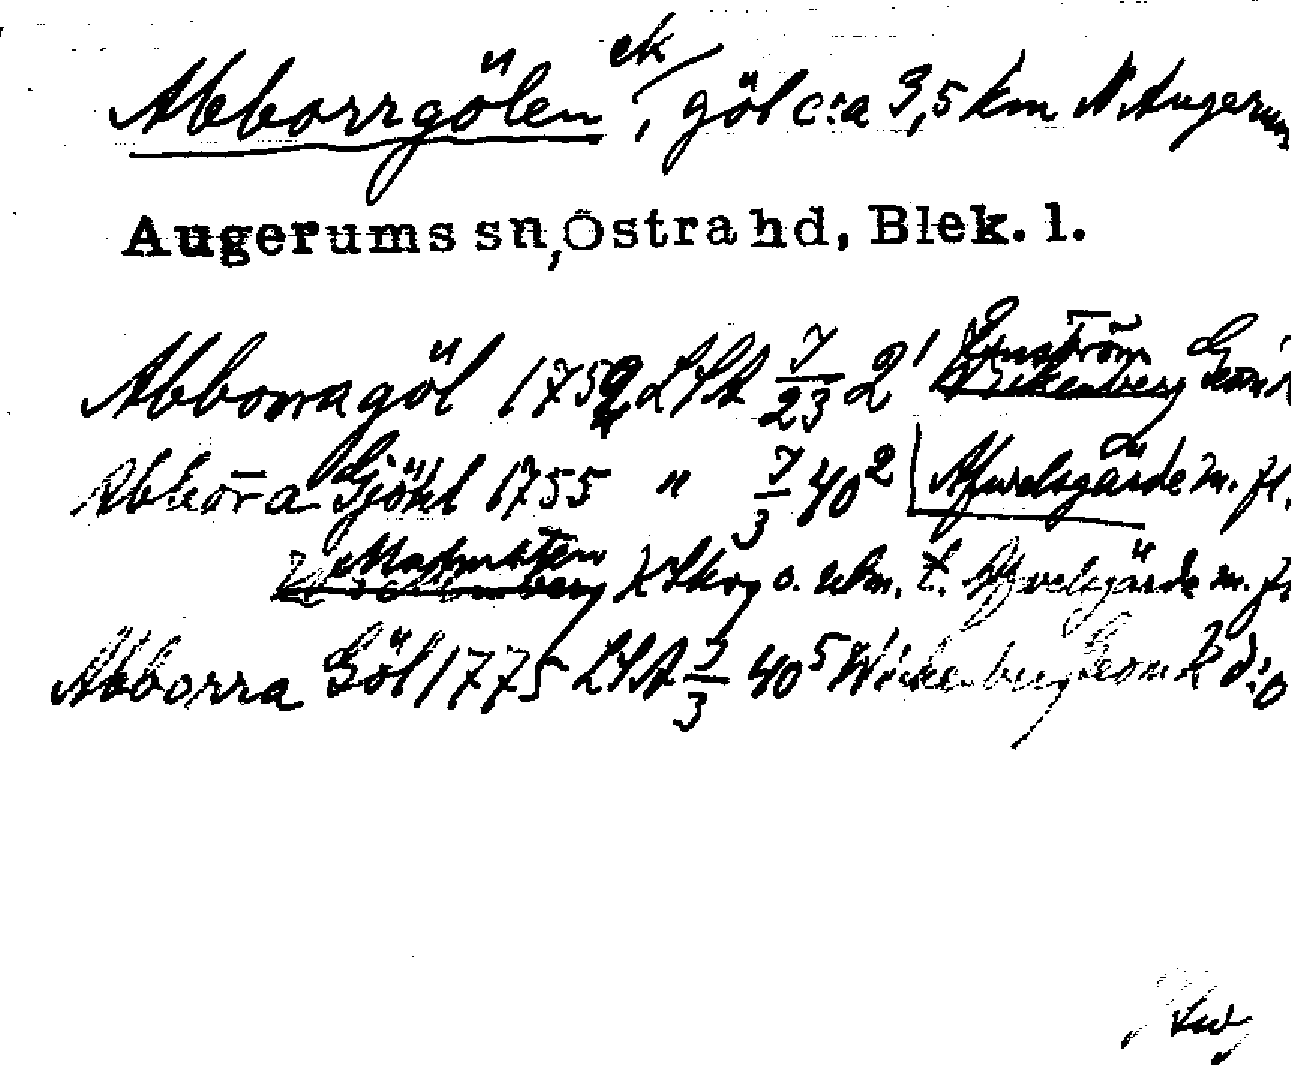 Abborrgölen ek, göl c:a 3,5 km N Augerum
Augerums sn, Östra hd, Blek. l.
Abborragöl 1752 LSA 7/23 2¹ Enström
Abbor̄a Gjöhl 1755 " 7/3 40² Afvelsgärde m. fl.
o. uhm. t. Afvelsgärde m. fl
Abborra Göl 1775 LSA 7/3 40⁵ Wickenberg d:o